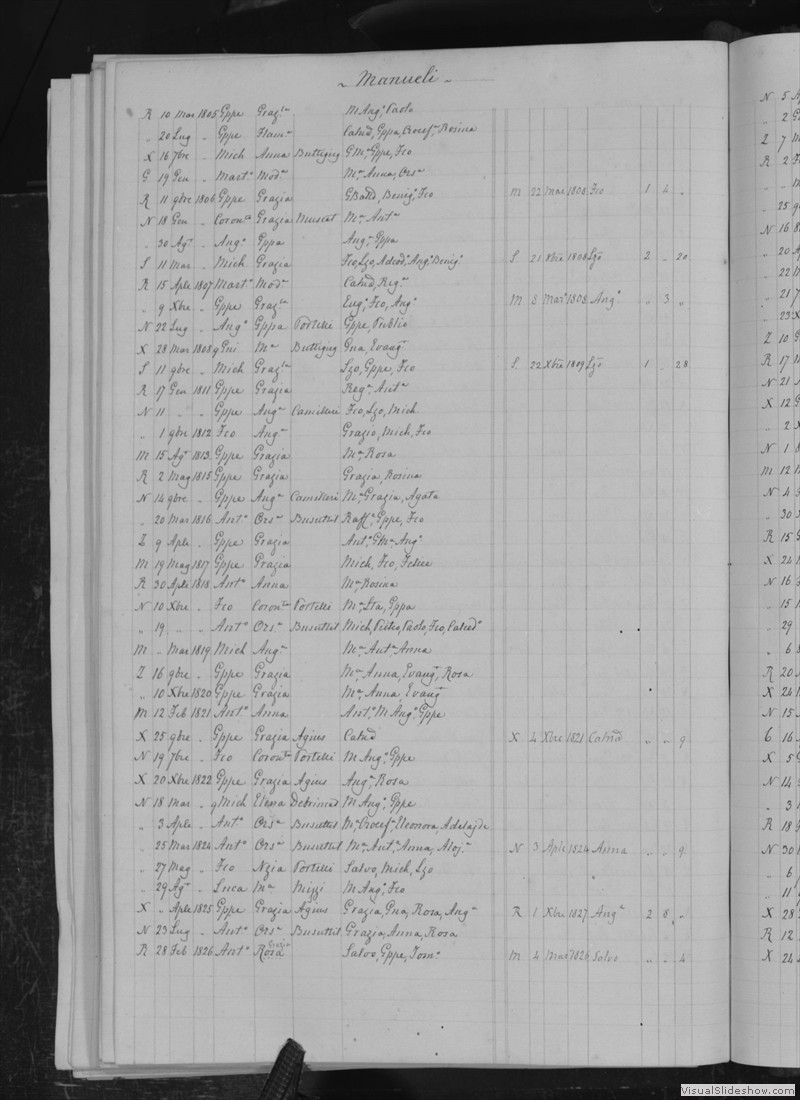 ~ Manueli ~
R 10 Mar 1805 Gppe Grazla M Anga, Paolo
„ 20 Lug „ Gppe Flama Catud, Gppa, Crocefa Rosina
X 16 7bre „ Mich Anna Buttigieg GMa, Gppe, Fco
G 19 Gen „ Marto Moda Ma, Anna, Orsa
R 11 9bre 1806 Gppe Grazia GBattd, Benigo, Fco M 22 Mar 1808 Fco 1 4 „
N 18 Gen „ Corona Grazia Muscat Ma Anta
„ 30 Ago „ Ango Gppa Anga Gppa
S 11 Mar „ Mich Grazia Fco, Lzo, Adeoda, Anga Benigo S 21 Xbre 1808 Lzo 2 „ 20
R 15 Aple 1807 Marto Moda Catud, Rega
„ 9 Xbre „ Gppe Grazla Euga, Fco, Ango M 8 Maro 1808 Ango „ 3 „
N 22 Lug „ Ango Gppa Portelli Gppe, Publio
X 28 Mar 1808 g Gni Ma Buttigieg Gna, Evanga
S 11 9bre „ Mich Grazla Lzo, Gppe, Fco S 22 Xbre 1809 Lzo 1 „ 28
R 17 Gen 1811 Gppe Grazia Rega, Anta
N 11 „ „ Gppe Anga Camilleri Fco, Lzo, Mich
„ 1 9bre 1812 Fco Anga Grazio, Mich, Fco
M 15 Ago 1813 Gppe Grazia Ma, Rosa
R 2 Mag 1815 Gppe Grazia Grazia, Rosina
N 14 9bre „ Gppe Anga Camilleri Ma, Grazia, Agata
„ 20 Mar 1816 Anto Orsa Busuttil Raffa, Gppe, Fco
Z 9 Aple „ Gppe Grazia Anta, GMa, Anga
M 19 Mag 1817 Gppe Grazia Mich, Fco, Felice
R 30 Aple 1818 Anto Anna Ma, Rosina
N 10 Xbre „ Fco Corona Portelli Ma, Lta, Gppa
„ 19 „ „ Anto Orsa Busuttil Mich, Pietro, Paolo, Fco, Catudo
M „ Mar 1819 Mich Anga Ma, Anta Anna
Z 16 9bre „ Gppe Grazia Ma, Anna, Evanga, Rosa
„ 10 Xbre 1820 Gppe Grazia Ma, Anna, Evanga
M 12 Feb 1821 Anto Anna Anto, M Anga, Gppe
X 25 9bre „ Gppe Grazia Agius Catud X 4 Xbre 1821 Catud „ „ 9
N 19 7bre „ Fco Corona Portelli M Anga, Gppe
X 20 Xbre 1822 Gppe Grazia Agius Anga, Rosa
N 18 Mar „ g Mich Elena Debrincat M Anga, Gppe
„ 3 Aple „ Anto Orsa Busuttil Ma Crocefa, Eleonora, Adelajde
„ 25 Mar 1824 Anto Orsa Busuttil Ma, Anta, Anna, Aloja N 3 Aple 1824 Anna „ „ 9
„ 27 Mag „ Fco Nzia Portelli Salvo, Mich, Lzo
„ 29 Ago „ Luca Ma Mizzi M Anga, Fco
X „ Aple 1825 Gppe Grazia Agius Grazia, Gna, Rosa, Anga R 1 Xbre 1827 Anga 2 8 „
N 23 Lug „ Anto Orsa Busuttil Grazia, Anna, Rosa
R 28 Feb 1826 Anto Rosa Grazia Salvo, Gppe, Toma M 4 Mar 1826 Salvo „ „ 4
VisualSlideshow.com